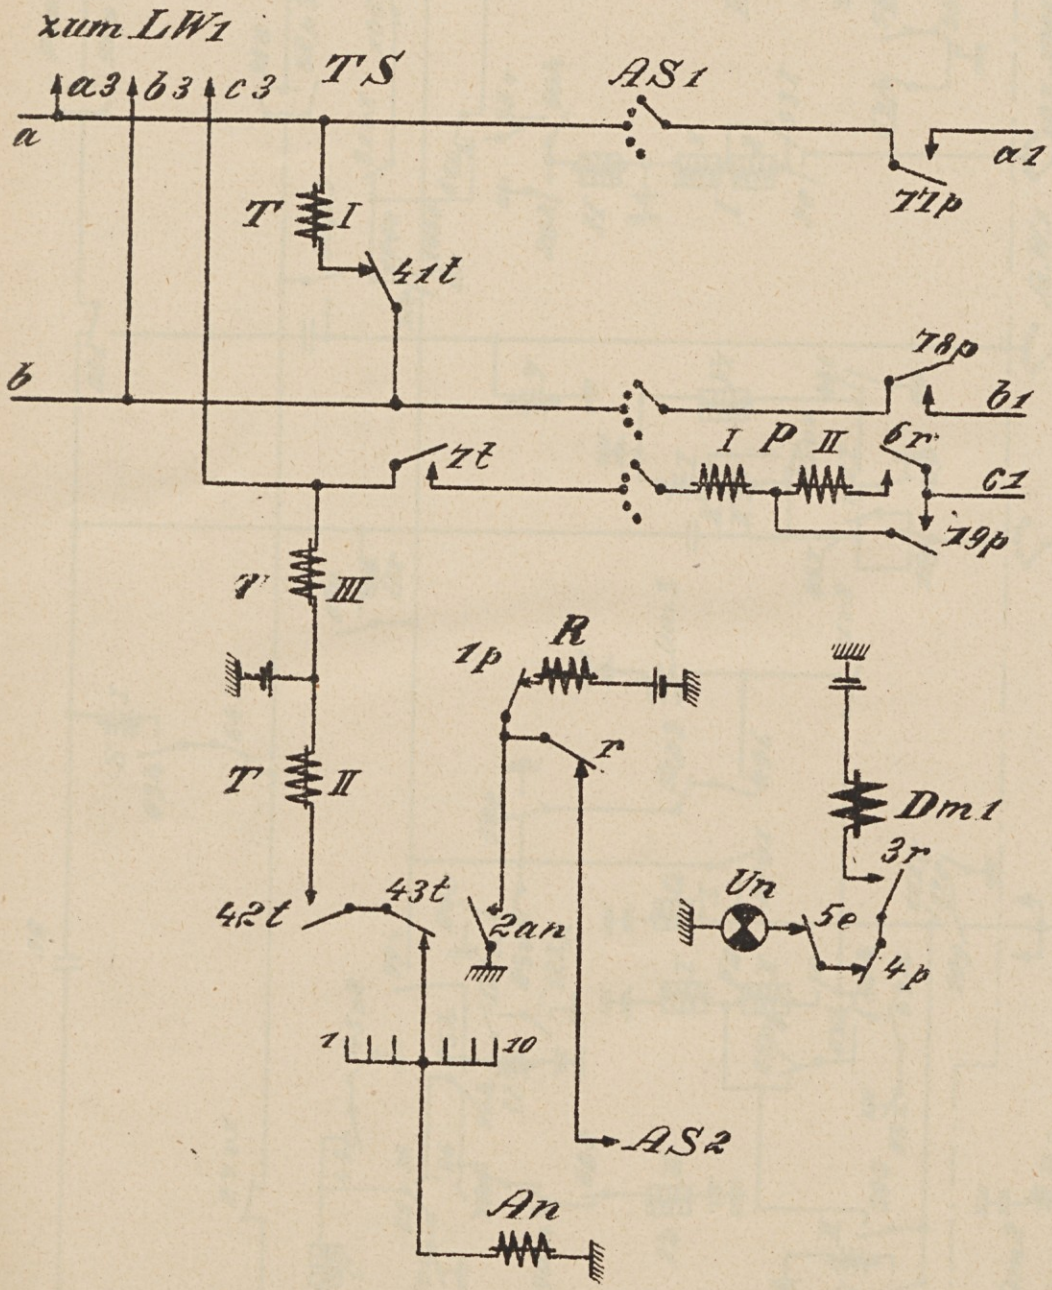 zum LW1
a3 b3 c3 TS AS1
a
a1
77p
T I
41t
b
78p
b1
7t
I P II 6r
c1
79p
T III
1p R
r
T II
Dm1
3r
42t 43t 2an
Un
5e
4p
1 10
AS2
An